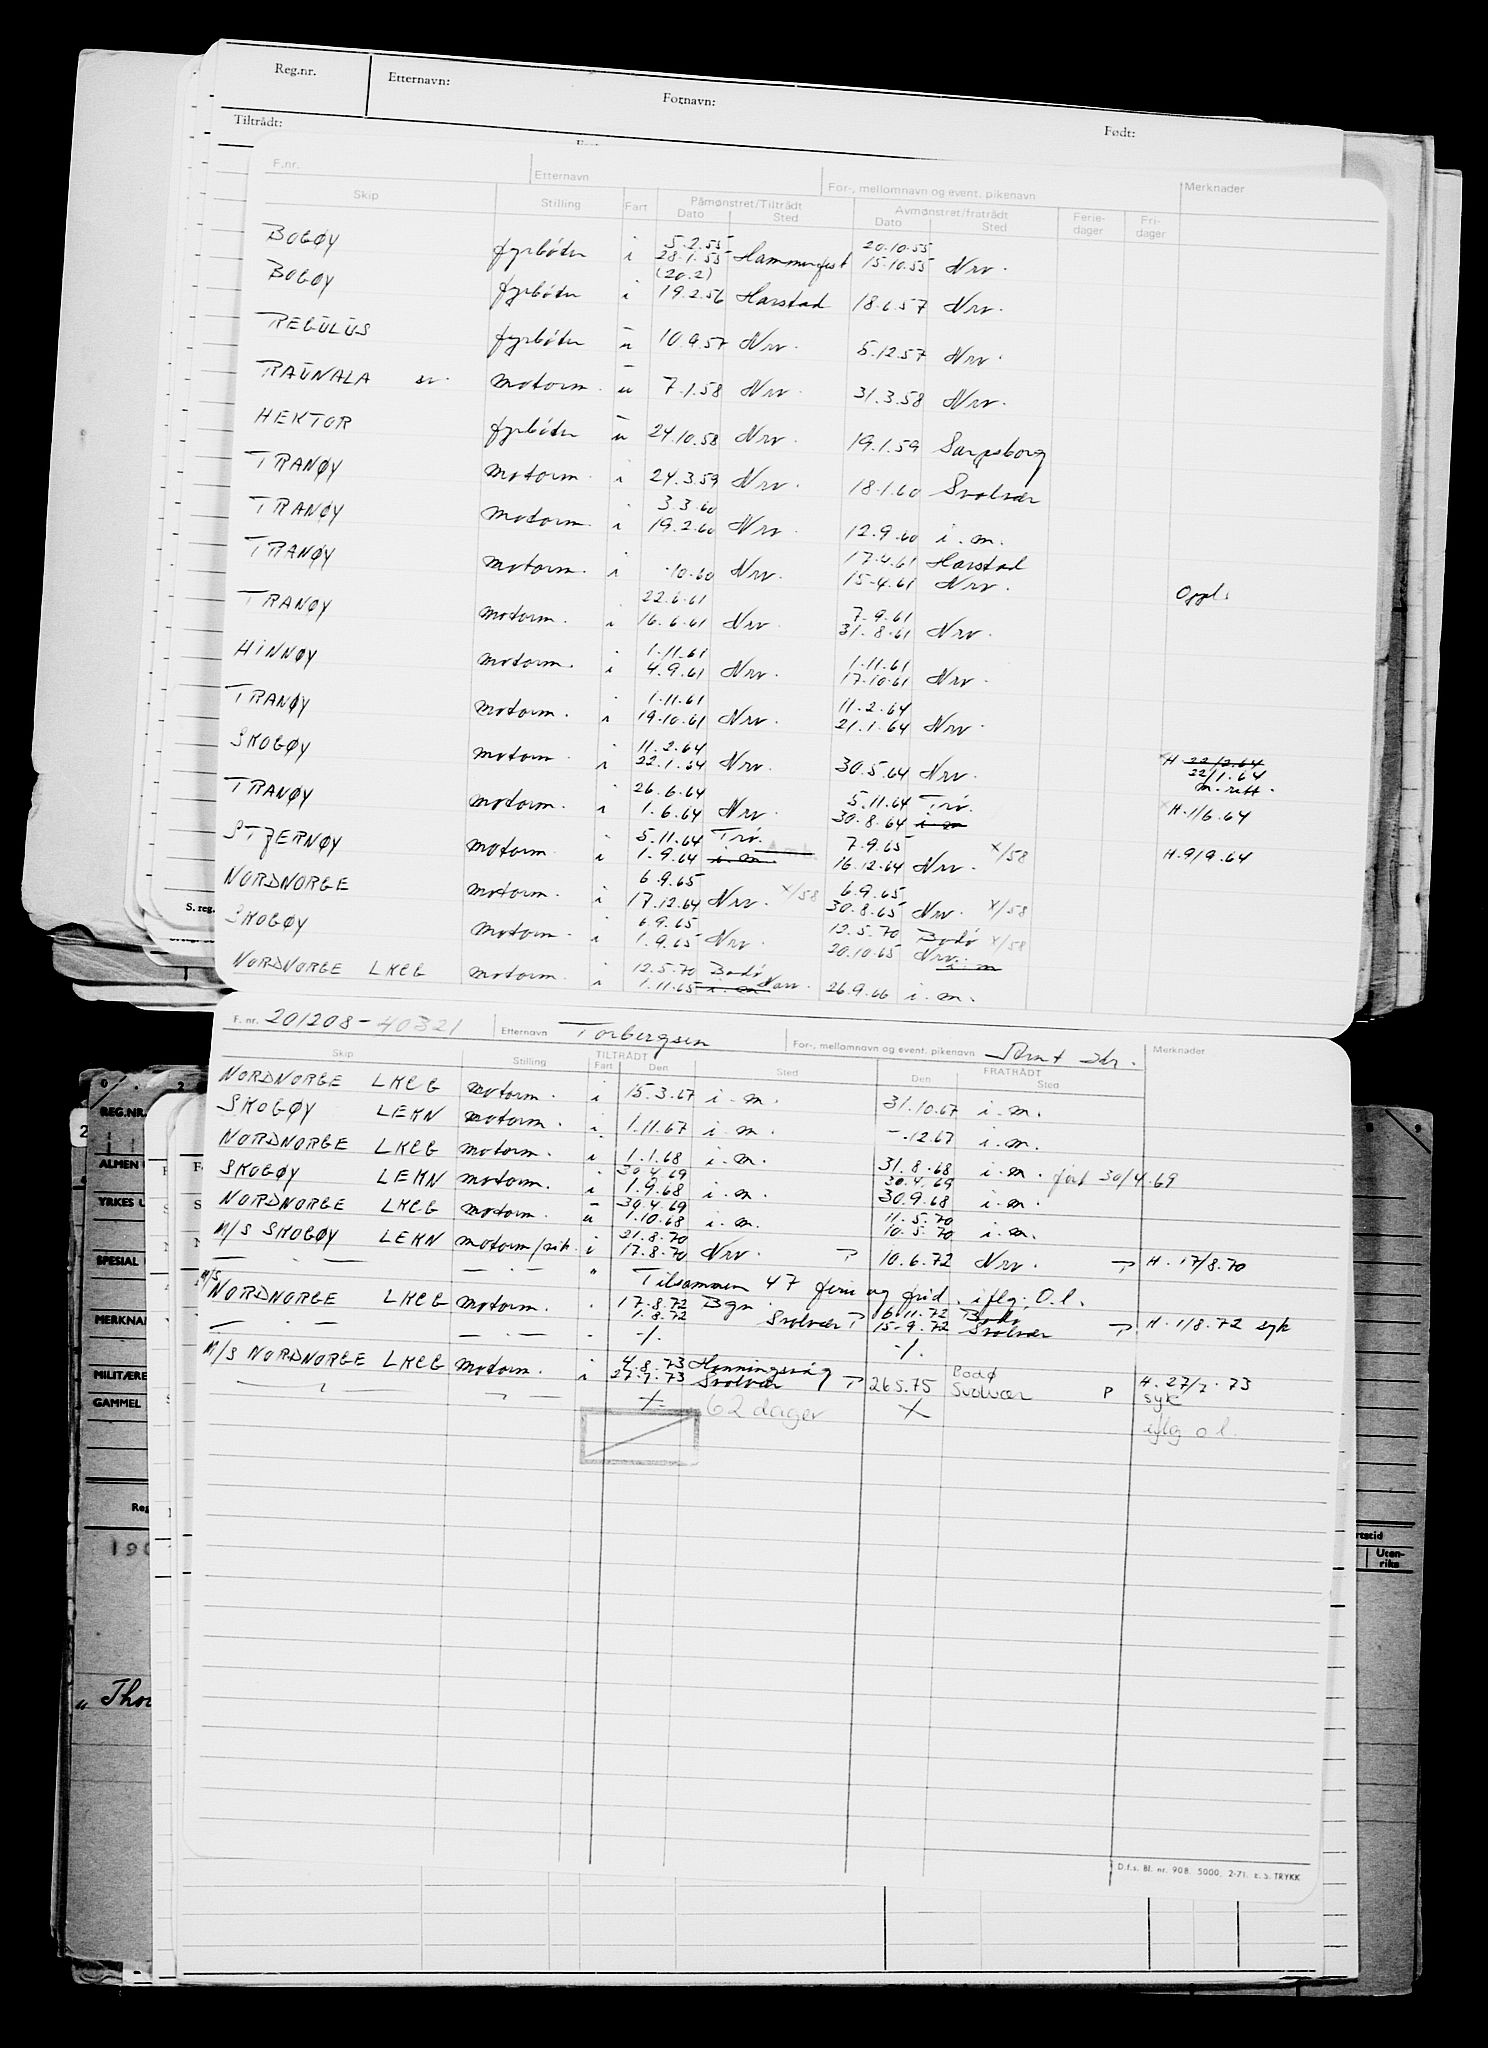 Reg.nr. Etternavn: Fornavn: Født:
Tiltrådt:
F.nr. Etternavn For-, mellomnavn og event. pikenavn Merknader
Skip Stilling Fart Påmønstret/Tiltrådt Avmønstret/fratrådt Ferie- Fri-
Dato Sted Dato Sted dager dager
5.2.55 20.10.55
BOGØY fyrbøder i 28.1.55 Hammerfest 15.10.55 Nrv.
(20.2)
BOGØY fyrbøder i 19.2.56 Harstad 18.6.57 Nrv.
REGULUS fyrbøder u 10.9.57 Nrv. 5.12.57 Nrv.
RAUNALA sv. motorm. u 7.1.58 Nrv. 31.3.58 Nrv.
HEKTOR fyrbøder u 24.10.58 Nrv. 19.1.59 Sarpsborg
TRANØY motorm. i 24.3.59 Nrv. 18.1.60 Svolvær
3.3.60
TRANØY motorm. i 19.2.60 Nrv. 12.9.60 i.m.
17.4.61 Harstad
TRANØY motorm. i .10.60 Nrv. 15.4.61 Nrv. Oppl.
22.6.61 7.9.61
TRANØY motorm. i 16.6.61 Nrv. 31.8.61 Nrv.
1.11.61 1.11.61
HINNØY motorm. i 4.9.61 Nrv. 17.10.61 Nrv.
1.11.61 11.2.64
TRANØY motorm. i 19.10.61 Nrv. 21.1.64 Nrv.
11.2.64
SKOGØY motorm. i 22.1.64 Nrv. 30.5.64 Nrv. H 22/2.64
22/1.64
m. rett.
26.6.64 5.11.64 Trv.
TRANØY motorm. i 1.6.64 Nrv. 30.8.64 i m H.1/6.64
5.11.64 Trv. 7.9.65 x/58
STJERNØY motorm. i 1.9.64 i m. 16.12.64 Nrv. H.9/9.64
6.9.65 6.9.65
NORDNORGE motorm. i 17.12.64 Nrv. x/58 30.8.65 Nrv. x/58
6.9.65 12.5.70 Bodø x/58
SKOGØY motorm. i 1.9.65 Nrv. 20.10.65 Nrv. i.m
12.5.70 Bodø
NORDNORGE LKCG motorm. i 1.11.65 i.m Narv. 26.9.66 i.m.
S. reg.
F. nr. 201208-40321 Etternavn Torbergsen For-, mellomnavn og event. pikenavn Arnt Chr. Merknader
Skip Stilling TILTRÅDT FRATRÅDT
Fart Den Sted Den Sted
NORDNORGE LKCG motorm. i 15.3.67 i.m. 31.10.67 i.m.
SKOGØY LEKN motorm. i 1.11.67 i.m. -.12.67 i.m.
NORDNORGE LKCG motorm. i 1.1.68 i.m. 31.8.68 i.m.
30.4.69 30.4.69 ført 30/4.69
SKOGØY LEKN motorm. i 1.9.68 i.m. 30.9.68 i.m.
30.4.69 11.5.70
NORDNORGE LKCG motorm. u 1.10.68 i.m. 10.5.70 i.m.
21.8.70
M/S SKOGØY LEKN motorm/vik. i 17.8.70 Nrv. P 10.6.72 Nrv. P H.17/8.70
— . — — . — " Tilsammen 47 ferie og frid. iflg. O.l.
17.8.72 Bgn 6.11.72 Bodø
M/S NORDNORGE LKCG motorm. 1.8.72 Svolvær P 15.9.72 Svolvær P H.1/8.72 syk
— . — — . — - -/. -/.
4.8.73 Honningsvåg Bodø
M/S NORDNORGE LKCG motorm. i 27.7.73 Svolvær P 26.5.75 Svolvær P H.27/7.73
syk
X 62 dager X
iflg o l.
REG.NR.
ALMEN
YRKES U
SPESIAL
MERKNA
MILITÆRE
GAMMEL
Reg
190
„ Tho
rtstid
Uten-
riks
D.f.s. Bl. nr. 908. 5000. 2-71. E.S. TRYKK